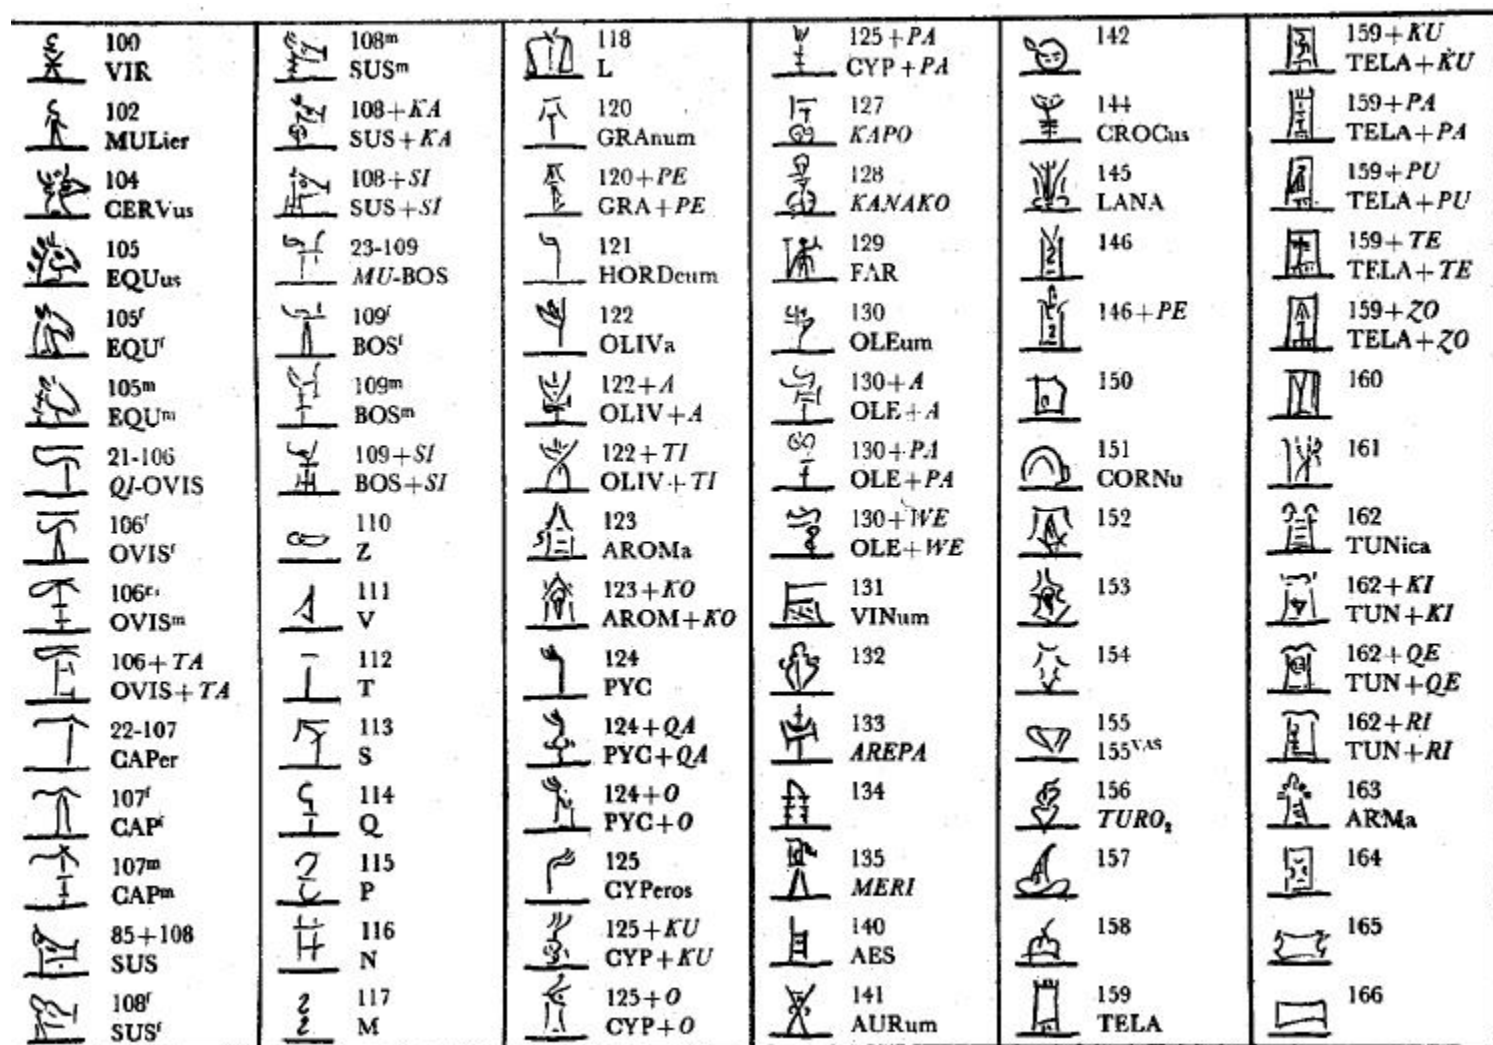 100
VIR
102
MULier
104
CERVus
105
EQUus
105ᶠ
EQUᶠ
105ᵐ
EQUᵐ
21-106
QI-OVIS
106ᶠ
OVISᶠ
OVISᵐ
106+TA
OVIS+TA
22-107
CAPer
107ᶠ
CAPᶠ
107ᵐ
CAPᵐ
85+108
SUS
108ᶠ
SUSᶠ
108ᵐ
SUSᵐ
108+KA
SUS+KA
108+SI
SUS+SI
23-109
MU-BOS
109ᶠ
BOSᶠ
109ᵐ
BOSᵐ
109+SI
BOS+SI
110
Z
111
V
112
T
113
S
114
Q
115
P
116
N
117
M
118
L
120
GRAnum
120+PE
GRA+PE
121
HORDeum
122
OLIVa
122+A
OLIV+A
122+TI
OLIV+TI
123
AROMa
123+KO
AROM+KO
124
PYC
124+QA
PYC+QA
124+O
PYC+O
125
CYPeros
125+KU
CYP+KU
125+O
CYP+O
125+PA
CYP+PA
127
KAPO
128
KANAKO
129
FAR
130
OLEum
130+A
OLE+A
130+PA
OLE+PA
130+WE
OLE+WE
131
VINum
132
133
AREPA
134
135
MERI
140
AES
141
AURum
142
144
CROCus
145
LANA
146
146+PE
150
151
CORNu
152
153
154
155
155ⱽᴬˢ
156
TURO₂
157
158
159
TELA
159+KU
TELA+KU
159+PA
TELA+PA
159+PU
TELA+PU
159+TE
TELA+TE
159+ZO
TELA+ZO
160
161
162
TUNica
162+KI
TUN+KI
162+QE
TUN+QE
162+RI
TUN+RI
163
ARMa
164
165
166